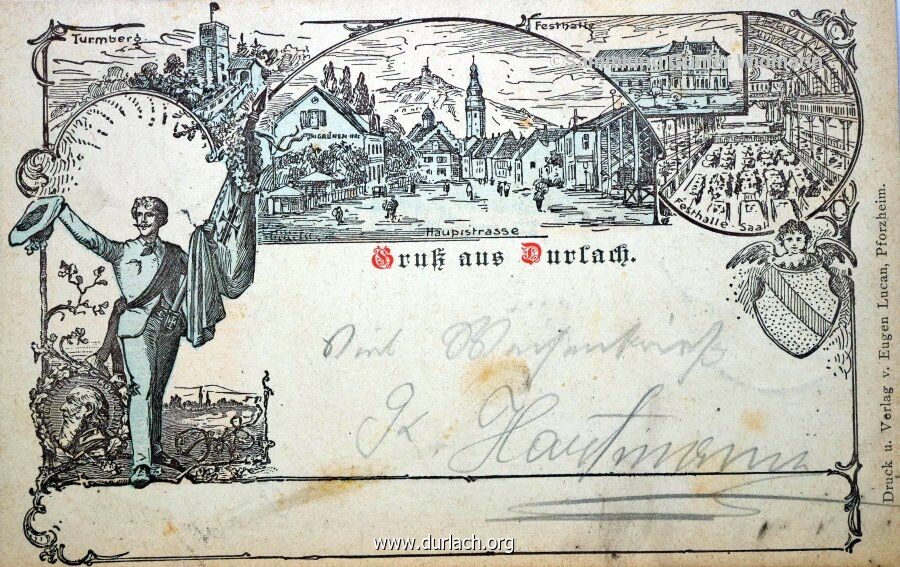 Turmberg.
Festhalle
© Sammlung Günter Widmann
ZUM GRÜNEN HOF
Hauptstrasse
Festhalle-Saal
Gruß aus Durlach.
Viel
K. Hartmann
Druck u. Verlag v. Eugen Lucan, Pforzheim.
www.durlach.org